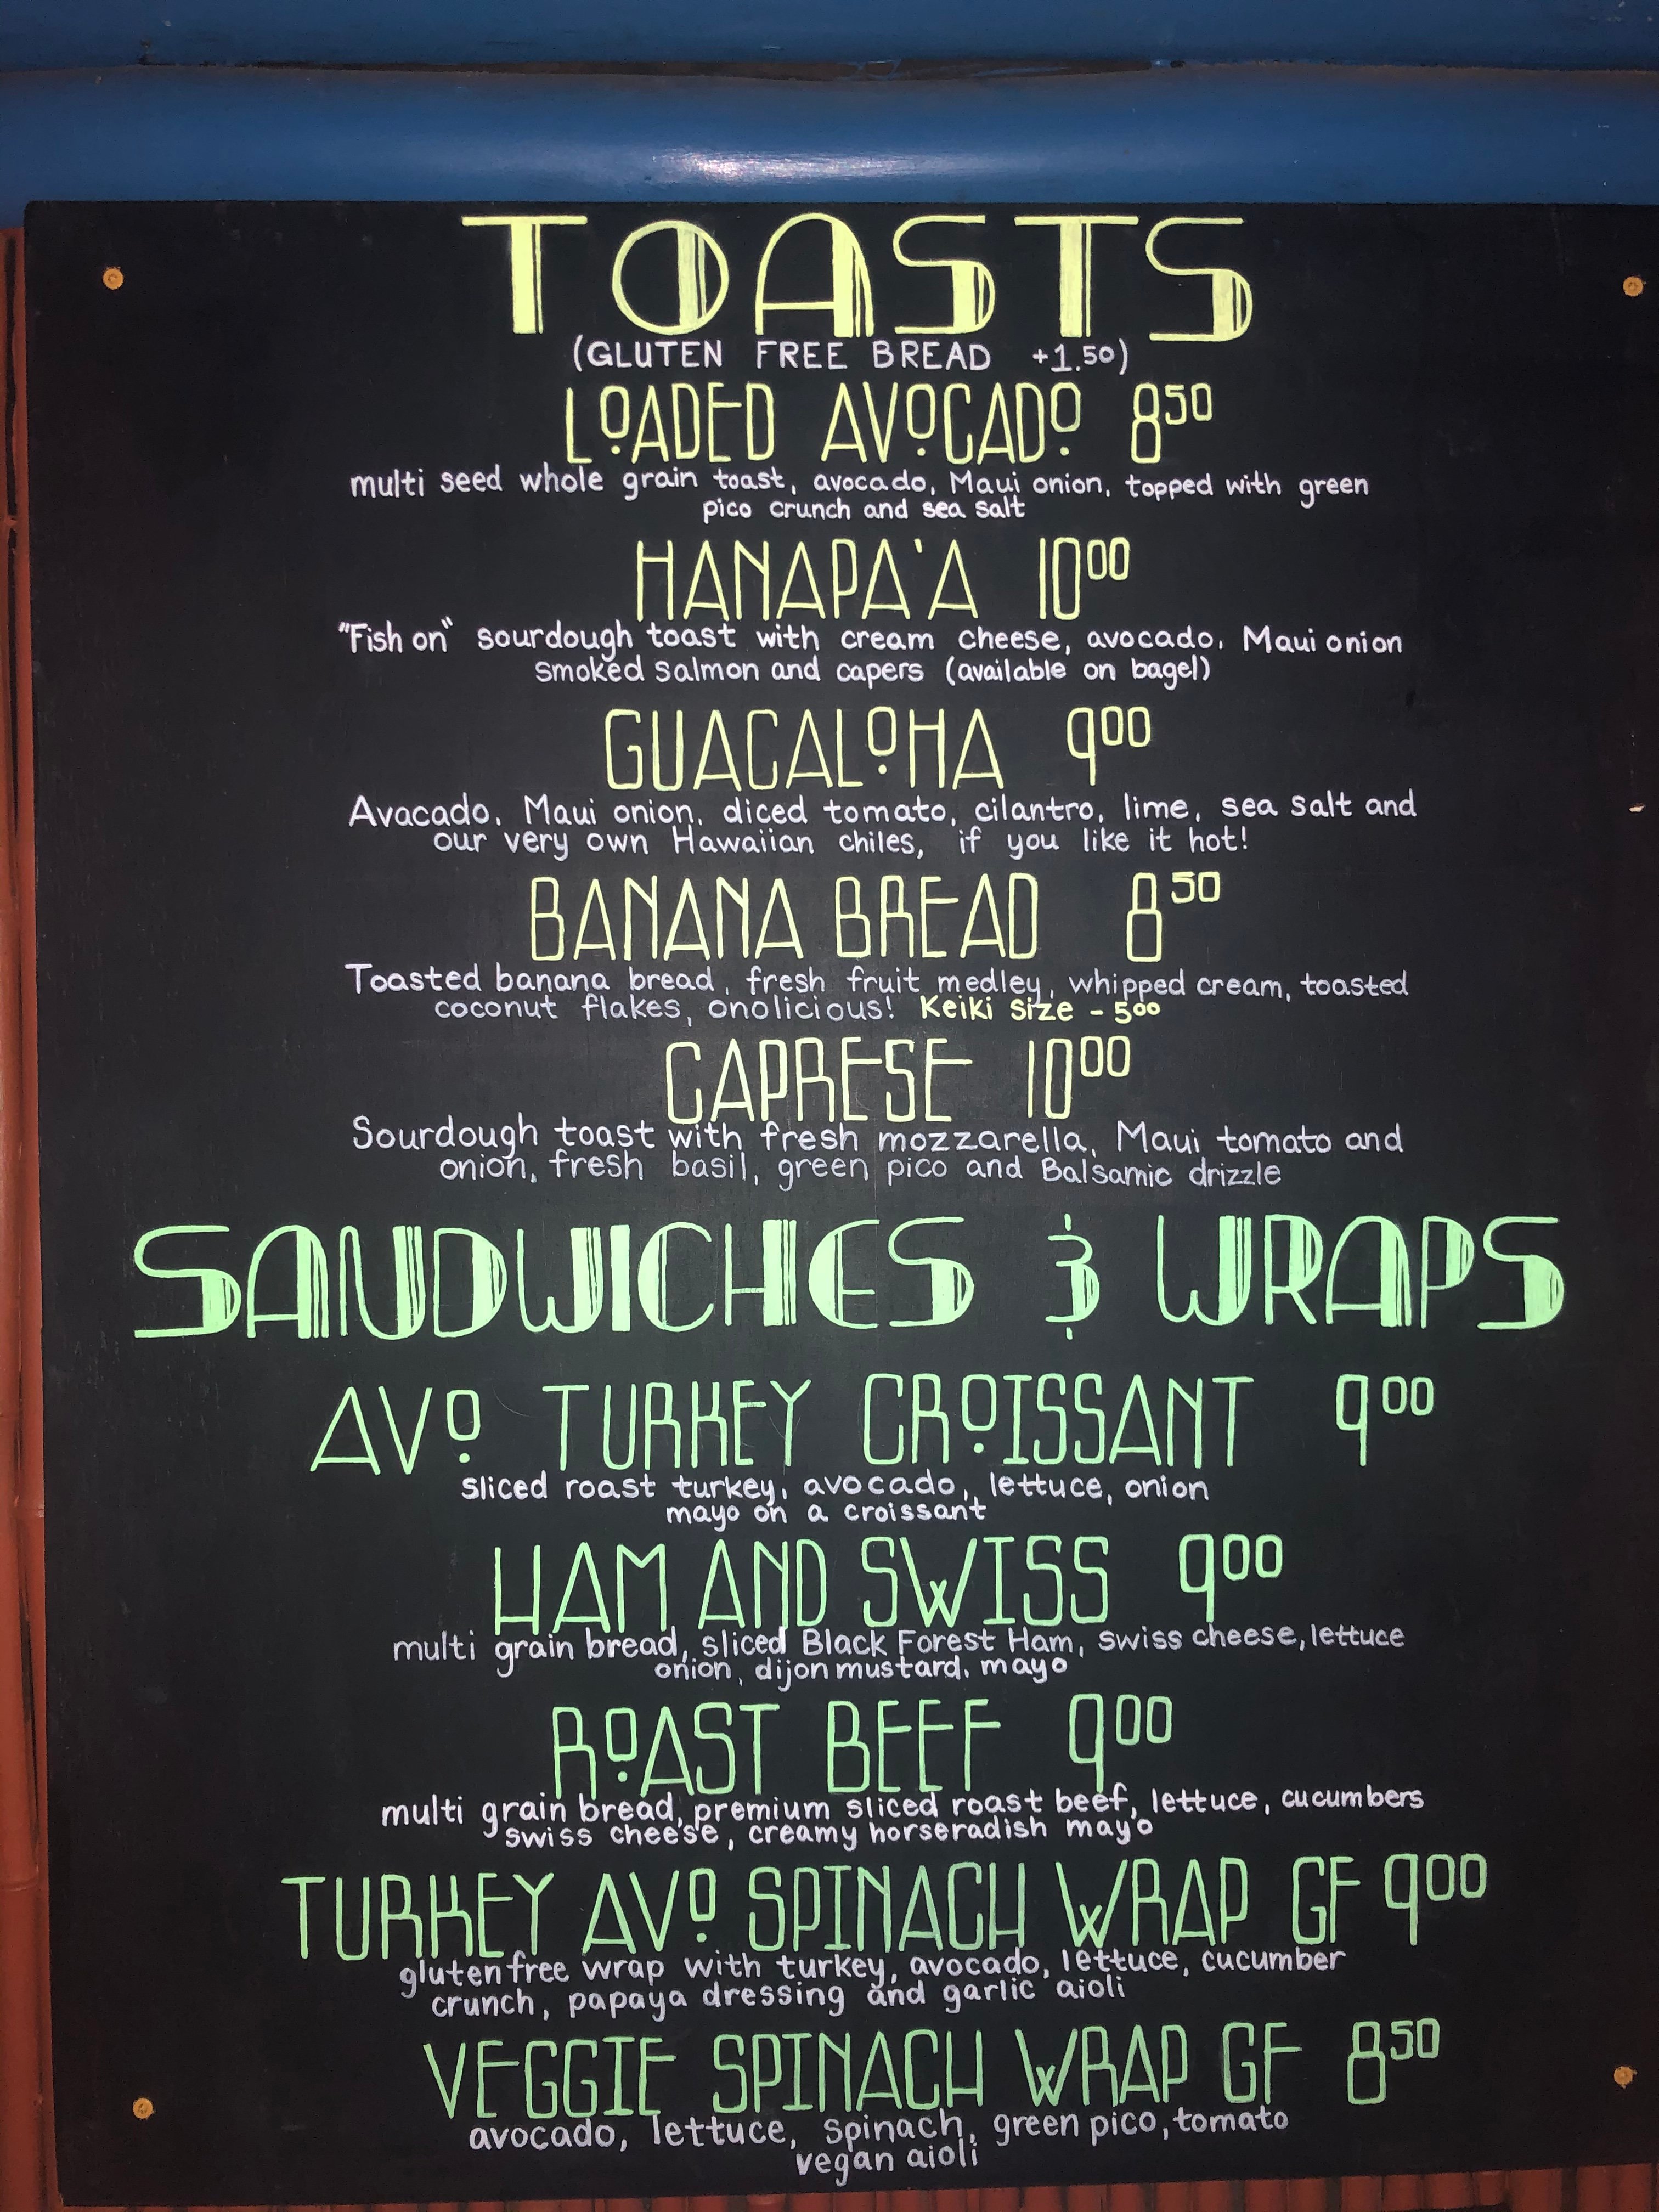 TOASTS
(GLUTEN FREE BREAD +1.50)
LOADED AVOCADO 850
multi seed whole grain toast, avocado, Maui onion, topped with green
pico crunch and sea salt
HANAPA'A 1000
"Fish on" sourdough toast with cream cheese, avocado, Maui onion
smoked salmon and capers (available on bagel)
GUACALOHA 900
Avacado, Maui onion, diced tomato, cilantro, lime, sea salt and
our very own Hawaiian chiles, if you like it hot!
BANANA BREAD 850
Toasted banana bread, fresh fruit medley, whipped cream, toasted
coconut flakes, onolicious! Keiki Size - 500
CAPRESE 1000
Sourdough toast with fresh mozzarella, Maui tomato and
onion, fresh basil, green pico and Balsamic drizzle
SANDWICHES & WRAPS
AVO TURKEY CROISSANT 900
sliced roast turkey, avocado, lettuce, onion
mayo on a croissant
HAM AND SWISS 900
multi grain bread, sliced Black Forest Ham, swiss cheese, lettuce
onion, dijon mustard, mayo
ROAST BEEF 900
multi grain bread, premium sliced roast beef, lettuce, cucumbers
swiss cheese, creamy horseradish mayo
TURKEY AVO SPINACH WRAP GF 900
gluten free wrap with turkey, avocado, lettuce, cucumber
crunch, papaya dressing and garlic aioli
VEGGIE SPINACH WRAP GF 850
avocado, lettuce, spinach, green pico, tomato
vegan aioli